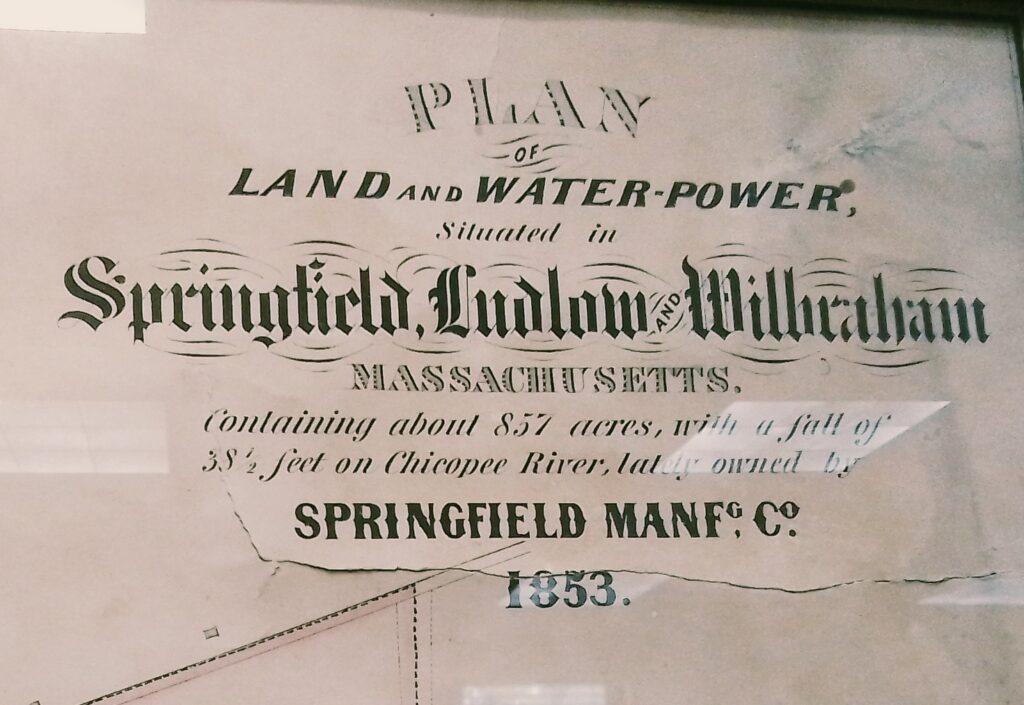 PLAN
OF
LAND AND WATER-POWER,
Situated in
Springfield, Ludlow AND Wilbraham
MASSACHUSETTS.
Containing about 857 acres, with a fall of
38 1/2 feet on Chicopee River, lately owned by
SPRINGFIELD MANFG. CO.
1853.